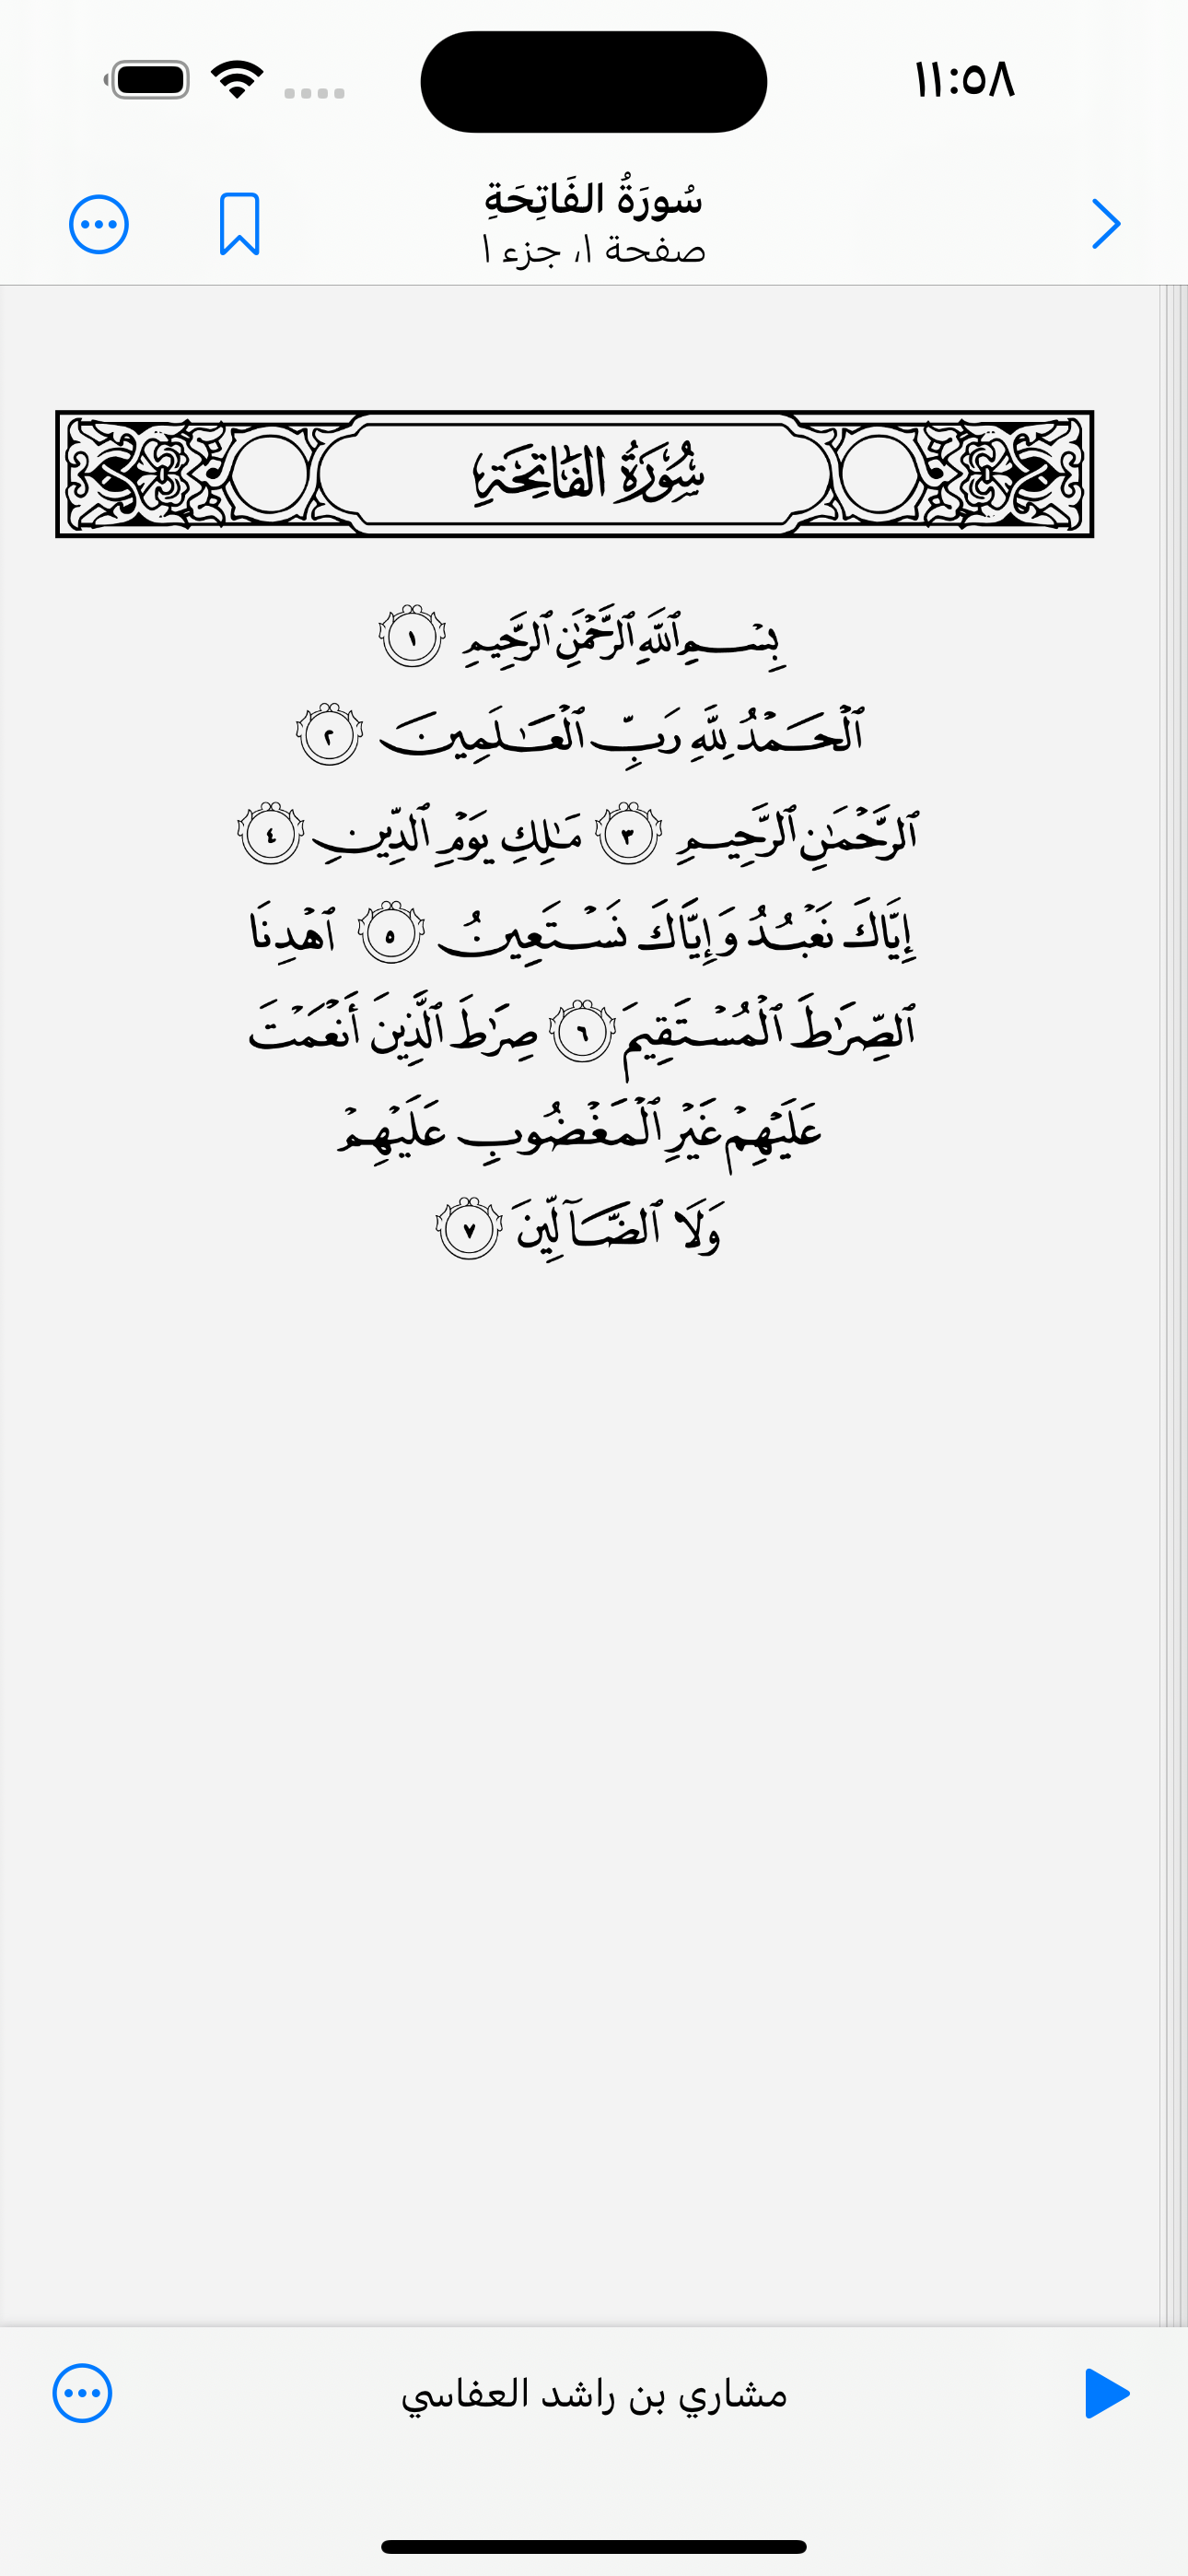 ١١:٥٨
سُورَةُ الفَاتِحَةِ
صفحة ١، جزء ١
سُورَةُ الفَاتِحَةِ
بِسۡمِ ٱللَّهِ ٱلرَّحۡمَٰنِ ٱلرَّحِيمِ ١
ٱلۡحَمۡدُ لِلَّهِ رَبِّ ٱلۡعَٰلَمِينَ ٢
ٱلرَّحۡمَٰنِ ٱلرَّحِيمِ ٣ مَٰلِكِ يَوۡمِ ٱلدِّينِ ٤
إِيَّاكَ نَعۡبُدُ وَإِيَّاكَ نَسۡتَعِينُ ٥ ٱهۡدِنَا
ٱلصِّرَٰطَ ٱلۡمُسۡتَقِيمَ ٦ صِرَٰطَ ٱلَّذِينَ أَنۡعَمۡتَ
عَلَيۡهِمۡ غَيۡرِ ٱلۡمَغۡضُوبِ عَلَيۡهِمۡ
وَلَا ٱلضَّآلِّينَ ٧
مشاري بن راشد العفاسي